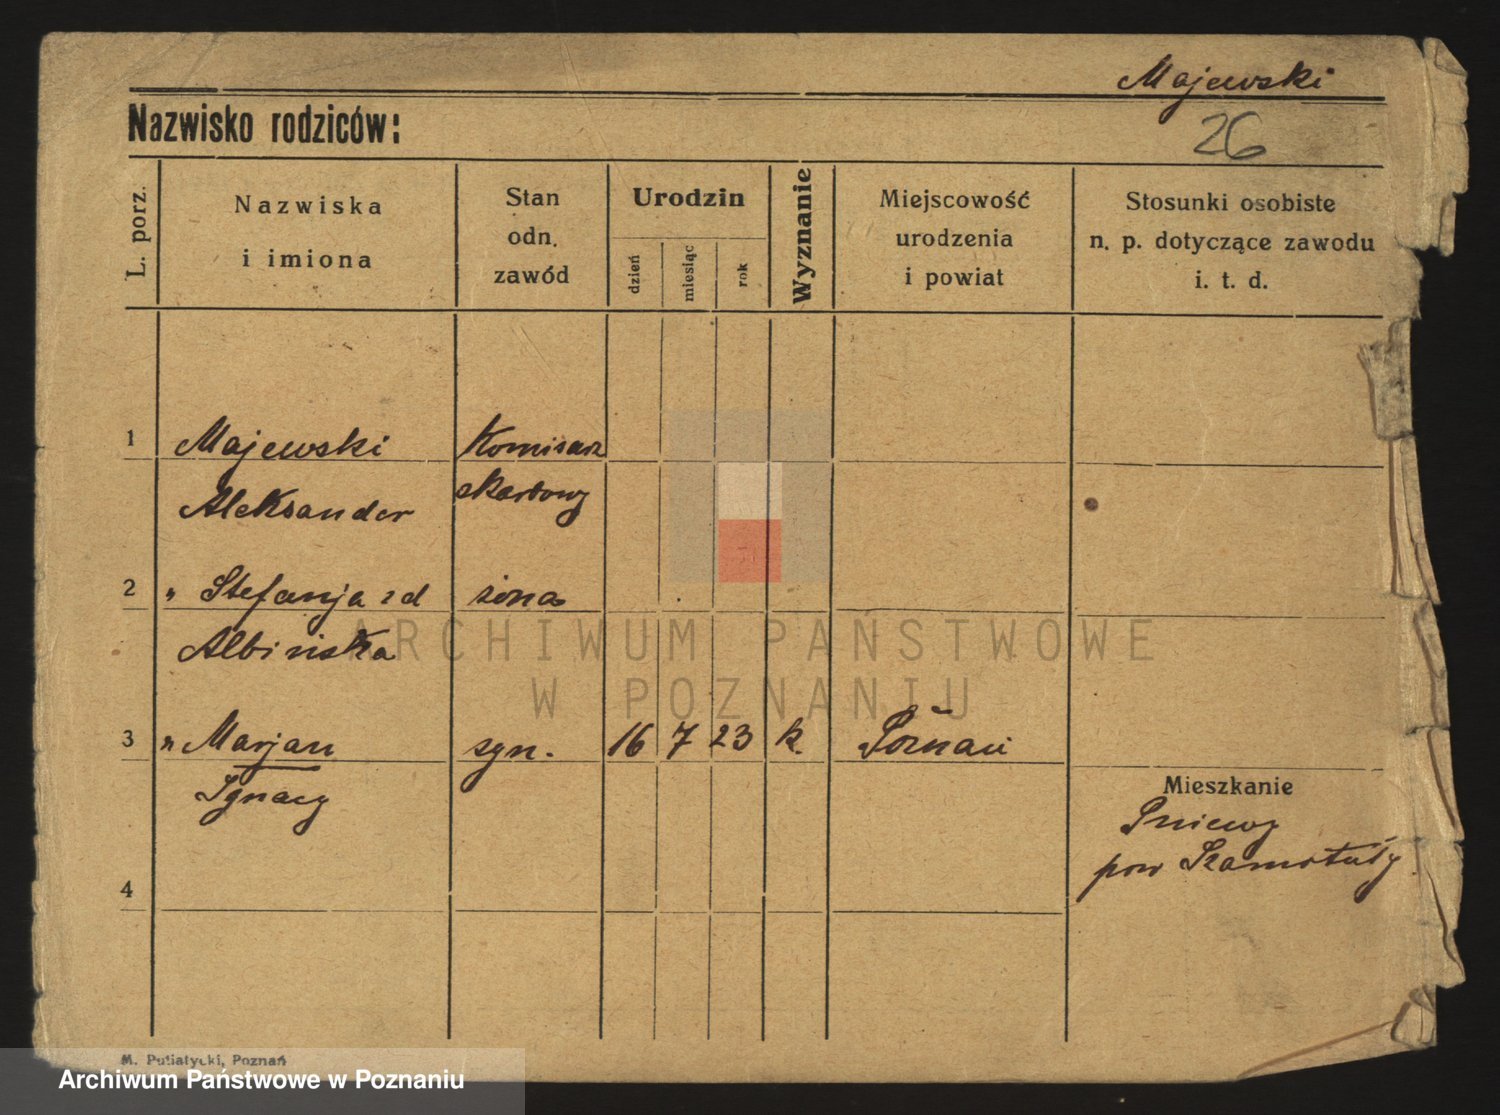 Majewski
Nazwisko rodziców:
26
L. porz.
Nazwiska
i imiona
Stan
odn.
zawód
Urodzin
dzień
miesiąc
rok
Wyznanie
Miejscowość
urodzenia
i powiat
Stosunki osobiste
n. p. dotyczące zawodu
i. t. d.
1 Majewski Komisarz
Aleksander skarbowy
2 " Stefanja zd żona
Albińska
ARCHIWUM PAŃSTWOWE
W POZNANIU
3 " Marjan syn. 16 7 23 k. Poznań
Ignacy
Mieszkanie
Pniewy
pow Szamotuły
4
M. Putiatycki, Poznań
Archiwum Państwowe w Poznaniu